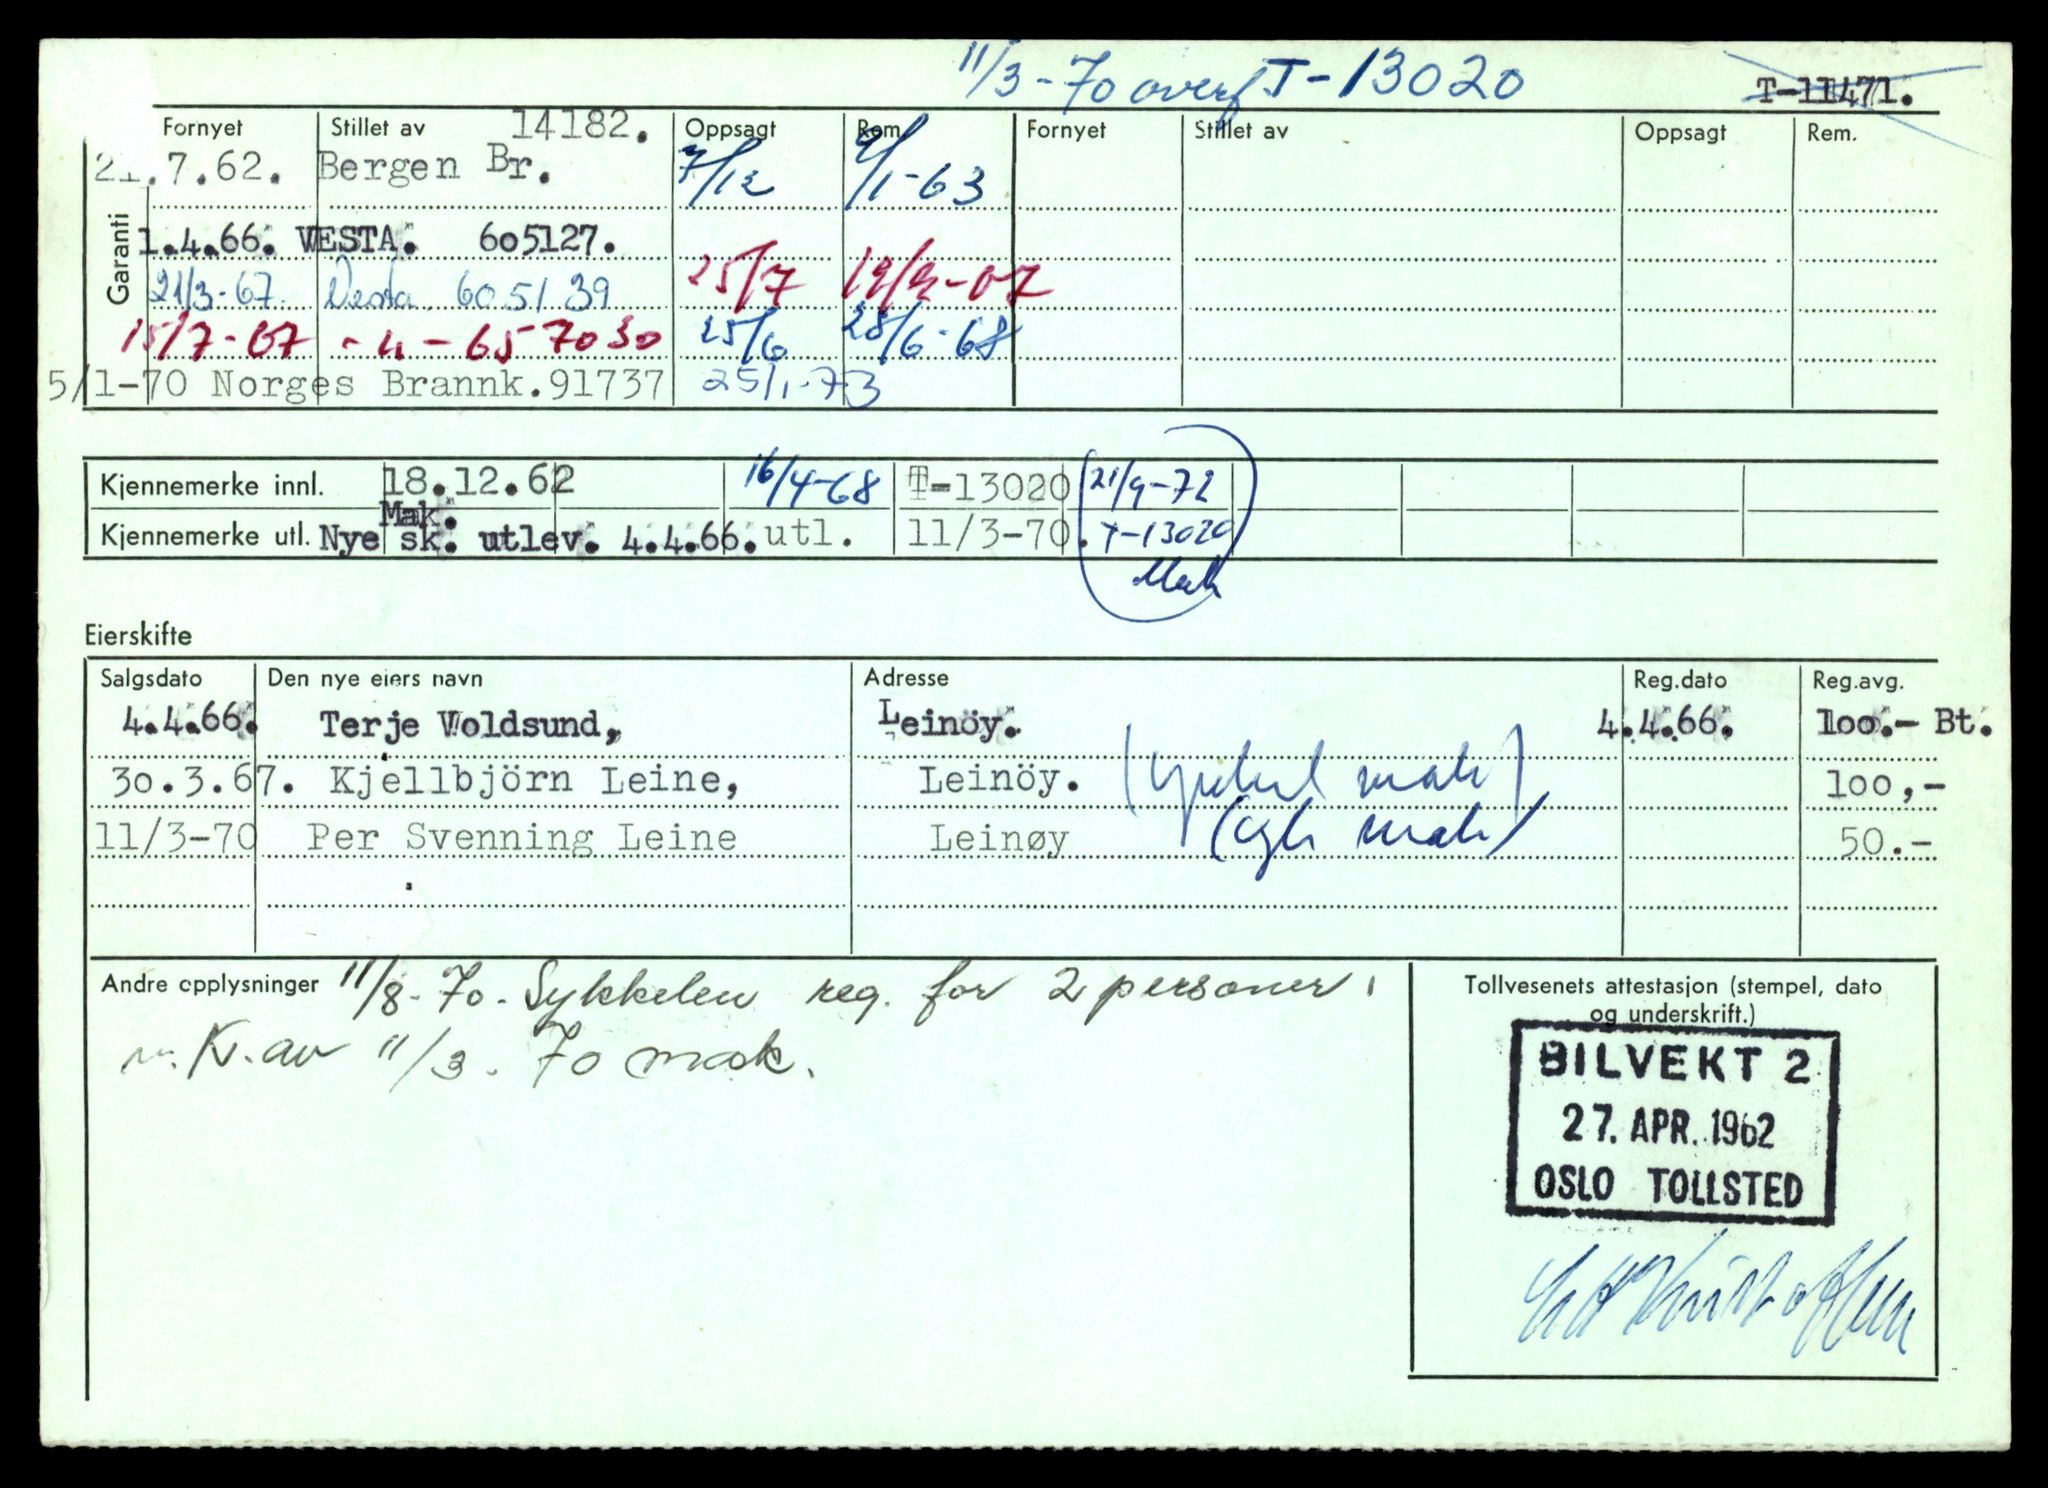 11/3-70 overf T-13020 T-11471.
Fornyet Stillet av 14182. Oppsagt Rem. Fornyet Stillet av Oppsagt Rem.
.7.62. Bergen Br. 7/12 9/1-63
Garanti
1.4.66. VESTA. 605127.
21/3-67. Vesta 605139 25/7
15/7-67 -"- 657030 25/6 28/6-68
5/1-70 Norges Brannk.91737 25/1-73
Kjennemerke innl. 18.12.62 16/4-68 T-13020 21/9-72
Mak.
Kjennemerke utl. Nye sk. utlev. 4.4.66. utl. 11/3-70. T-13020
Mak
Eierskifte
Salgsdato Den nye eiers navn Adresse Reg.dato Reg.avg.
4.4.66. Terje Voldsund, Leinöy. 4.4.66. 100.- Bt.
30.3.67. Kjellbjörn Leine, Leinöy. mak) 100,-
11/3-70 Per Svenning Leine Leinøy mak) 50.-
Andre opplysninger 11/8-70. Sykkelen reg. for 2 personer i
Tollvesenets attestasjon (stempel, dato
og underskrift.)
Kv. av 11/3-70 mak.
BILVEKT 2
27. APR. 1962
OSLO TOLLSTED